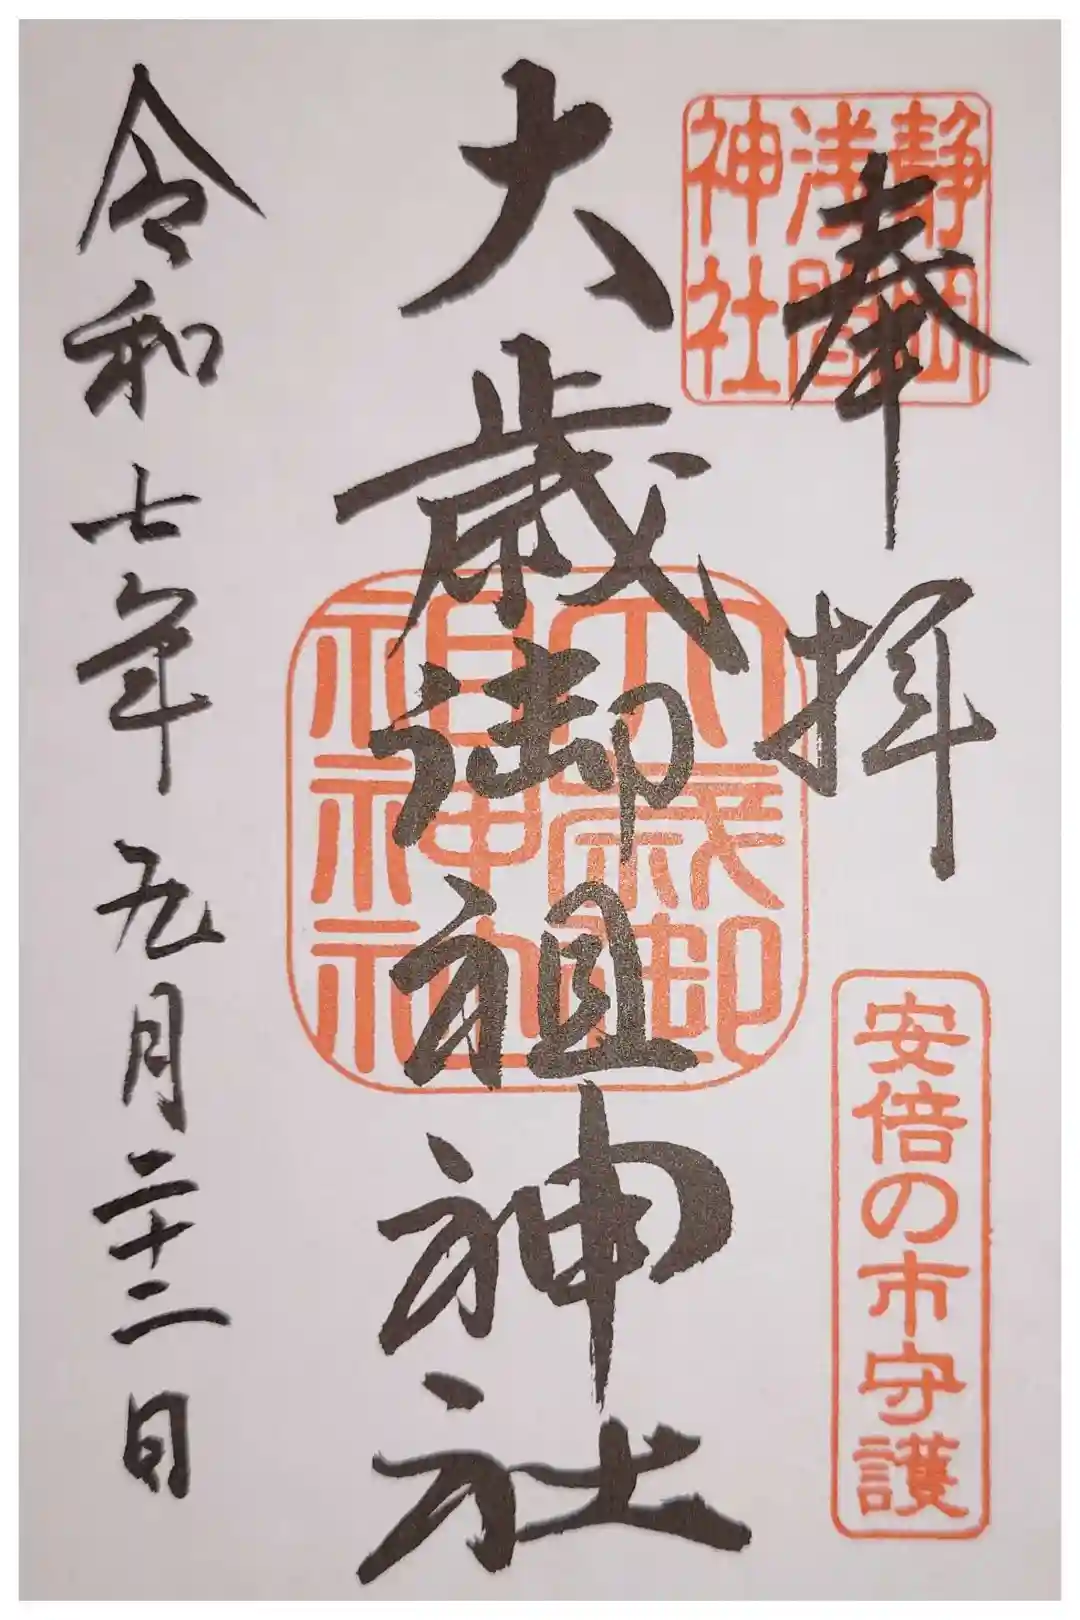 奉拝
静岡
浅間
神社
安倍の市守護
大歳御祖神社
大歳御
祖神社
令和七年九月二十二日